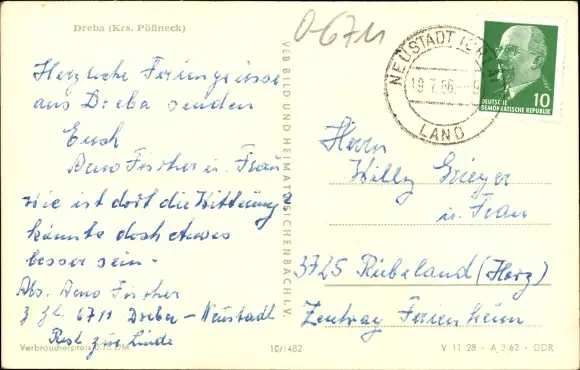 Dreba (Krs. Pößneck)
Herzliche Feriengrüsse
aus Dreba senden
Euch
Arno Fischer u. Frau
Wie ist dort die Witterung
könnte doch etwas
besser sein.
Abs. Arno Fischer
z Zt. 6711 Dreba-Neustadt
Rest. zur Linde
Verbraucherpreis 0.15 DM
VEB BILD UND HEIMAT REICHENBACH I. V.
10/1482
0-6711
NEUSTADT (ORLA)
19.7.66
LAND
10
DEUTSCHE
DEMOKRATISCHE REPUBLIK
Herrn
Willy
u. Frau
3725 Rübeland (Harz)
Zentrag Ferienheim
V 11 28 - A 3/62 - DDR